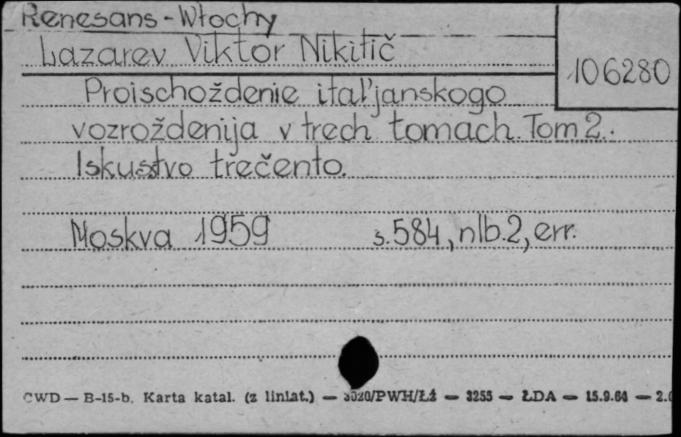 Renesans - Włochy
Lazarev Viktor Nikitič
106280
Proischoždenie ital'janskogo
vozroždenija v trech tomach. Tom 2.
Iskustvo trečento.
Moskva 1959 s. 584, nlb. 2, err.
CWD — B-15-b. Karta katal. (z liniat.) — 3020/PWH/Łż — 3255 — ŁDA — 15.9.64 —